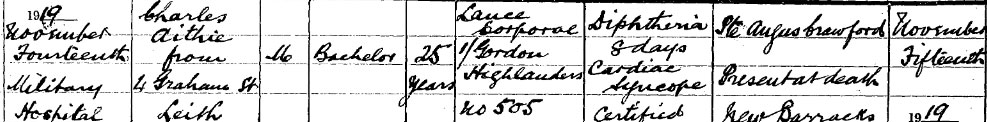 1919
November
Fourteenth
Military
Hospital
Charles
Aithie
from
4 Graham St
Leith
M
Bachelor
25
years
Lance
Corporal
1/Gordon
Highlanders
No 505
Diphtheria
8 days
Cardiac
Syncope
Certified
Pte Angus Crawford
Present at death
New Barracks
November
Fifteenth
1919